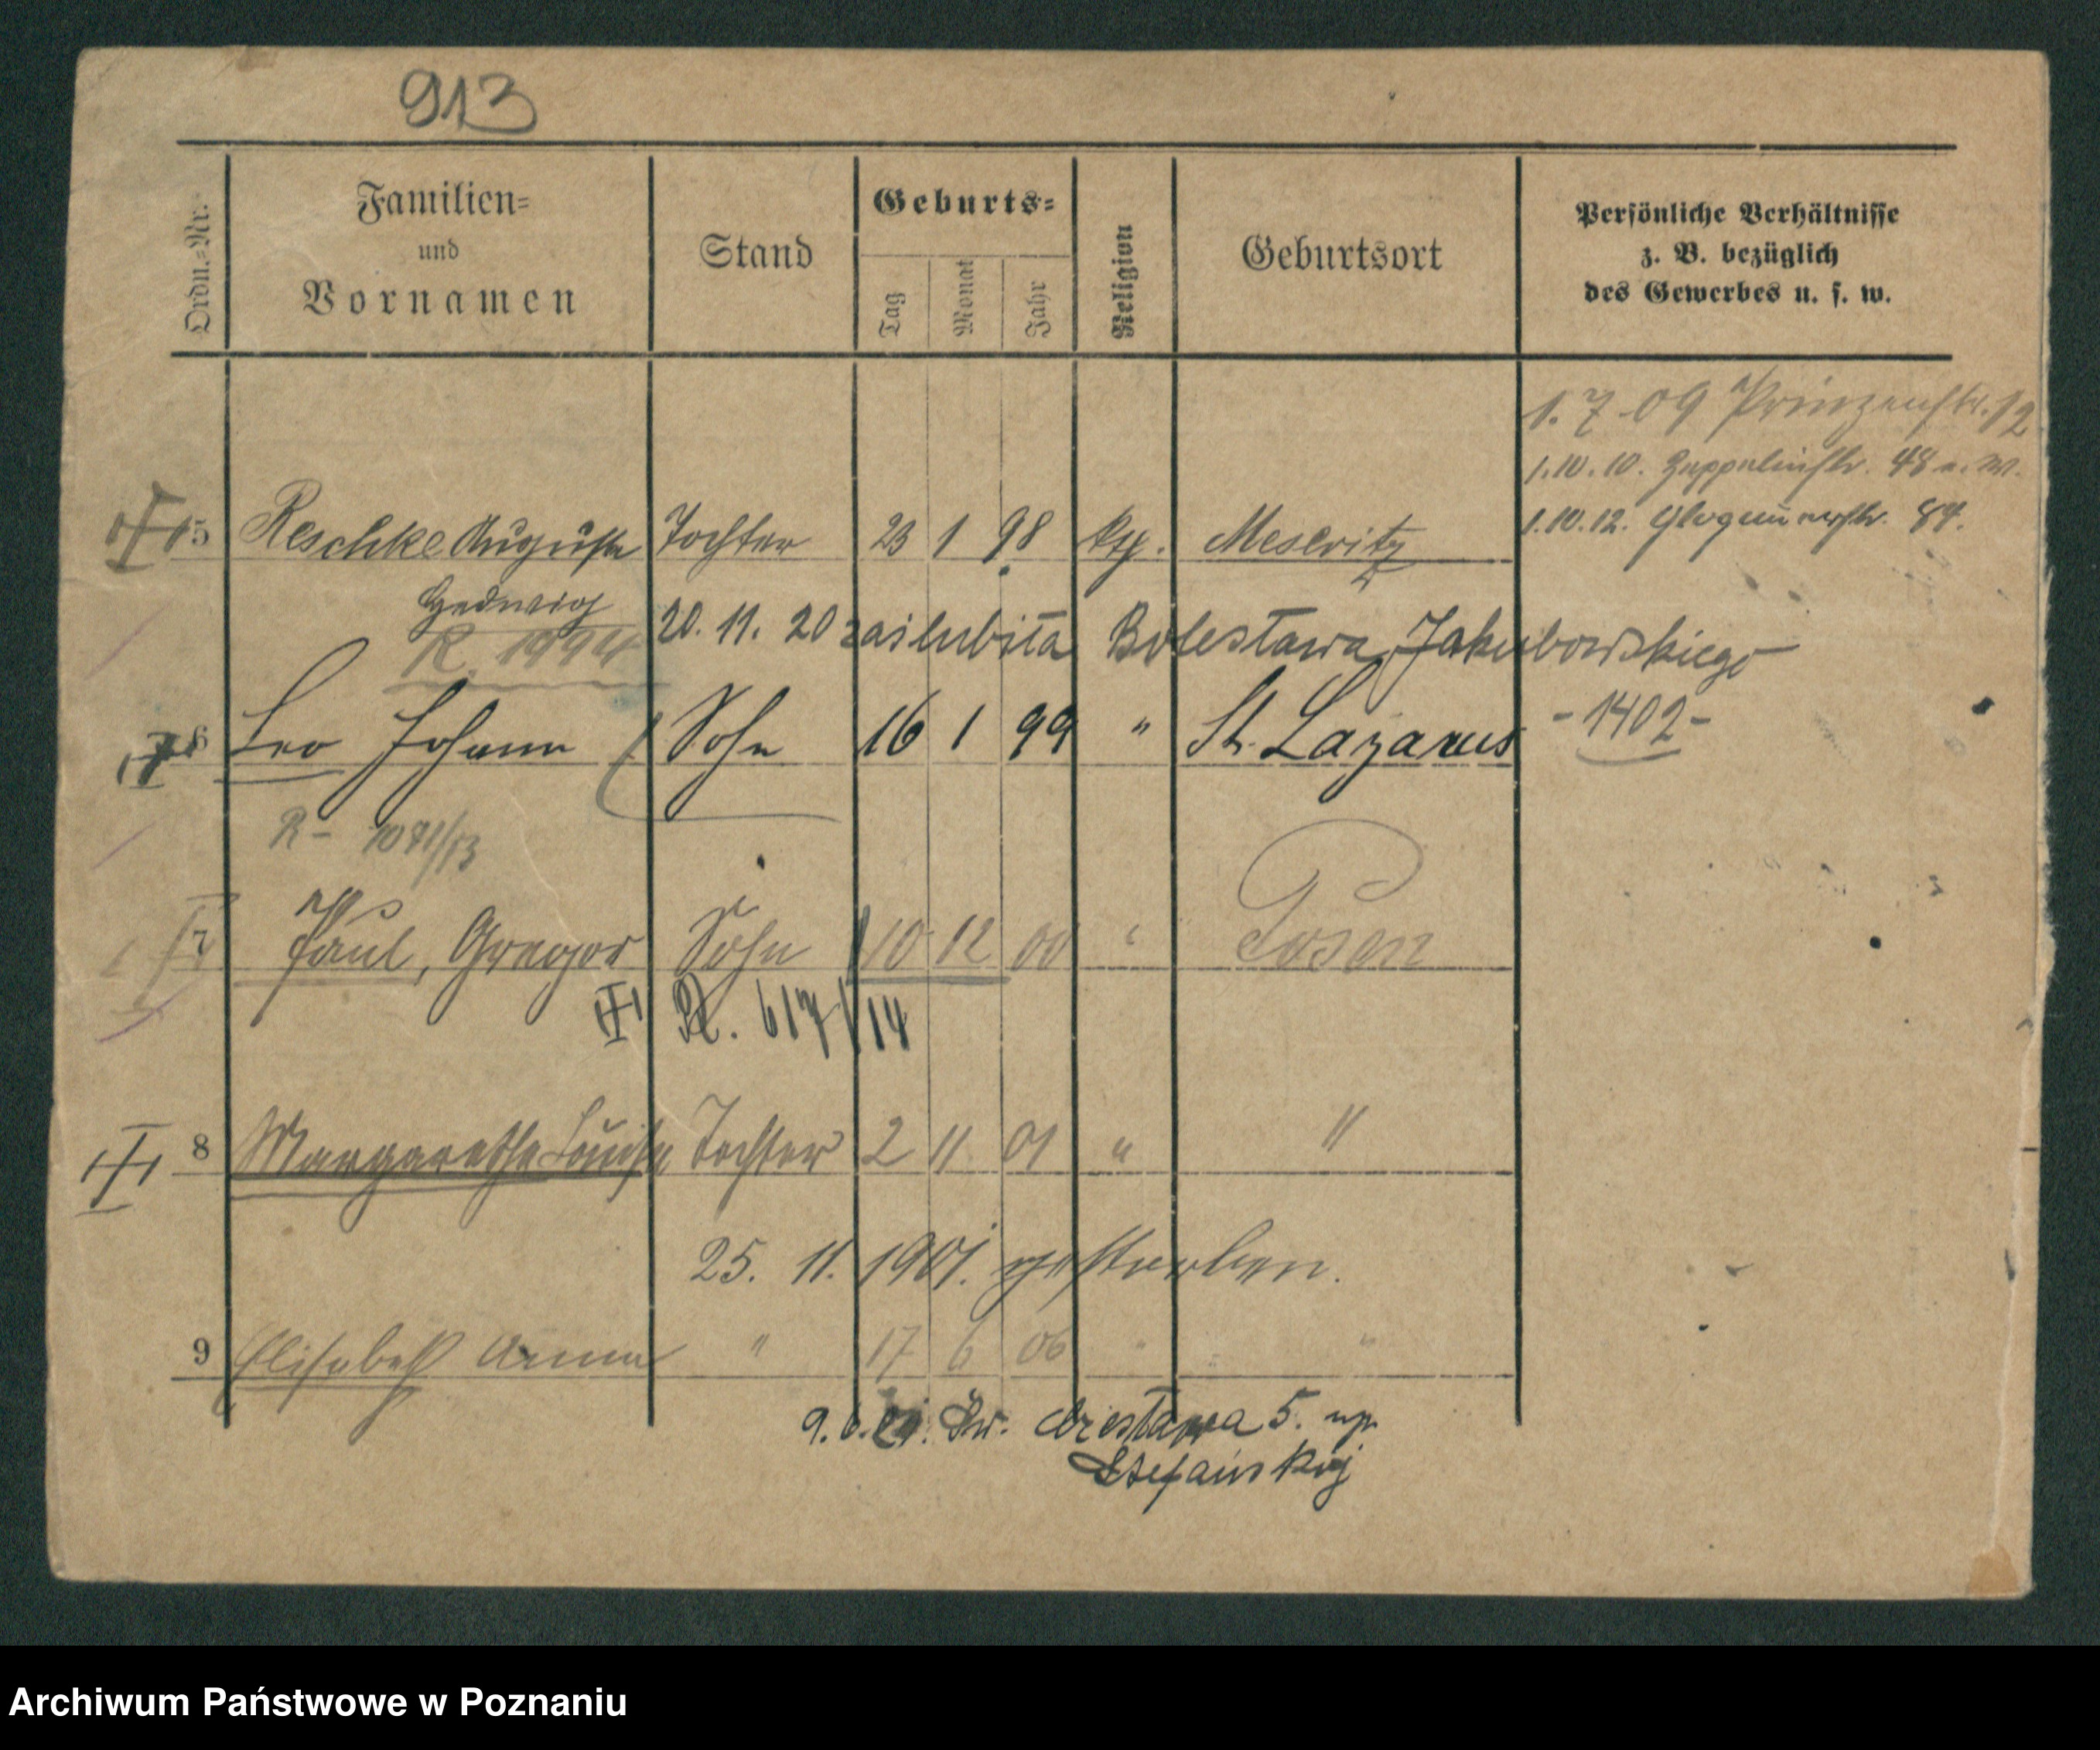 913
Ordn.-Nr.
Familien-
und
Vornamen
Stand
Geburts-
Tag
Monat
Jahr
Religion
Geburtsort
Persönliche Verhältnisse
z. B. bezüglich
des Gewerbes u. s. w.
1. 7 09 Prinzenstr. 12
1.10.10. Zeppelinstr. 48
1.10.12. Glogauerstr. 84.
5 Reschke Auguste Tochter 23 1 98 Meseritz
Hedwig
R. 1994
20. 11. 20 zaślubiła Bolesława Jakubowskiego
6 Leo Johann Sohn 16 1 99 " St. Lazarus - 1402 -
R - 1071/13
7 Paul, Gregor Sohn 10 12 00 " Posen
R. 617/14
8 Margarethe Louise Tochter 2 11 01 " "
25. 11. 1901. gestorben.
9 Elisabeth Anna " 17 6 06 " "
5.
Stefański
Archiwum Państwowe w Poznaniu